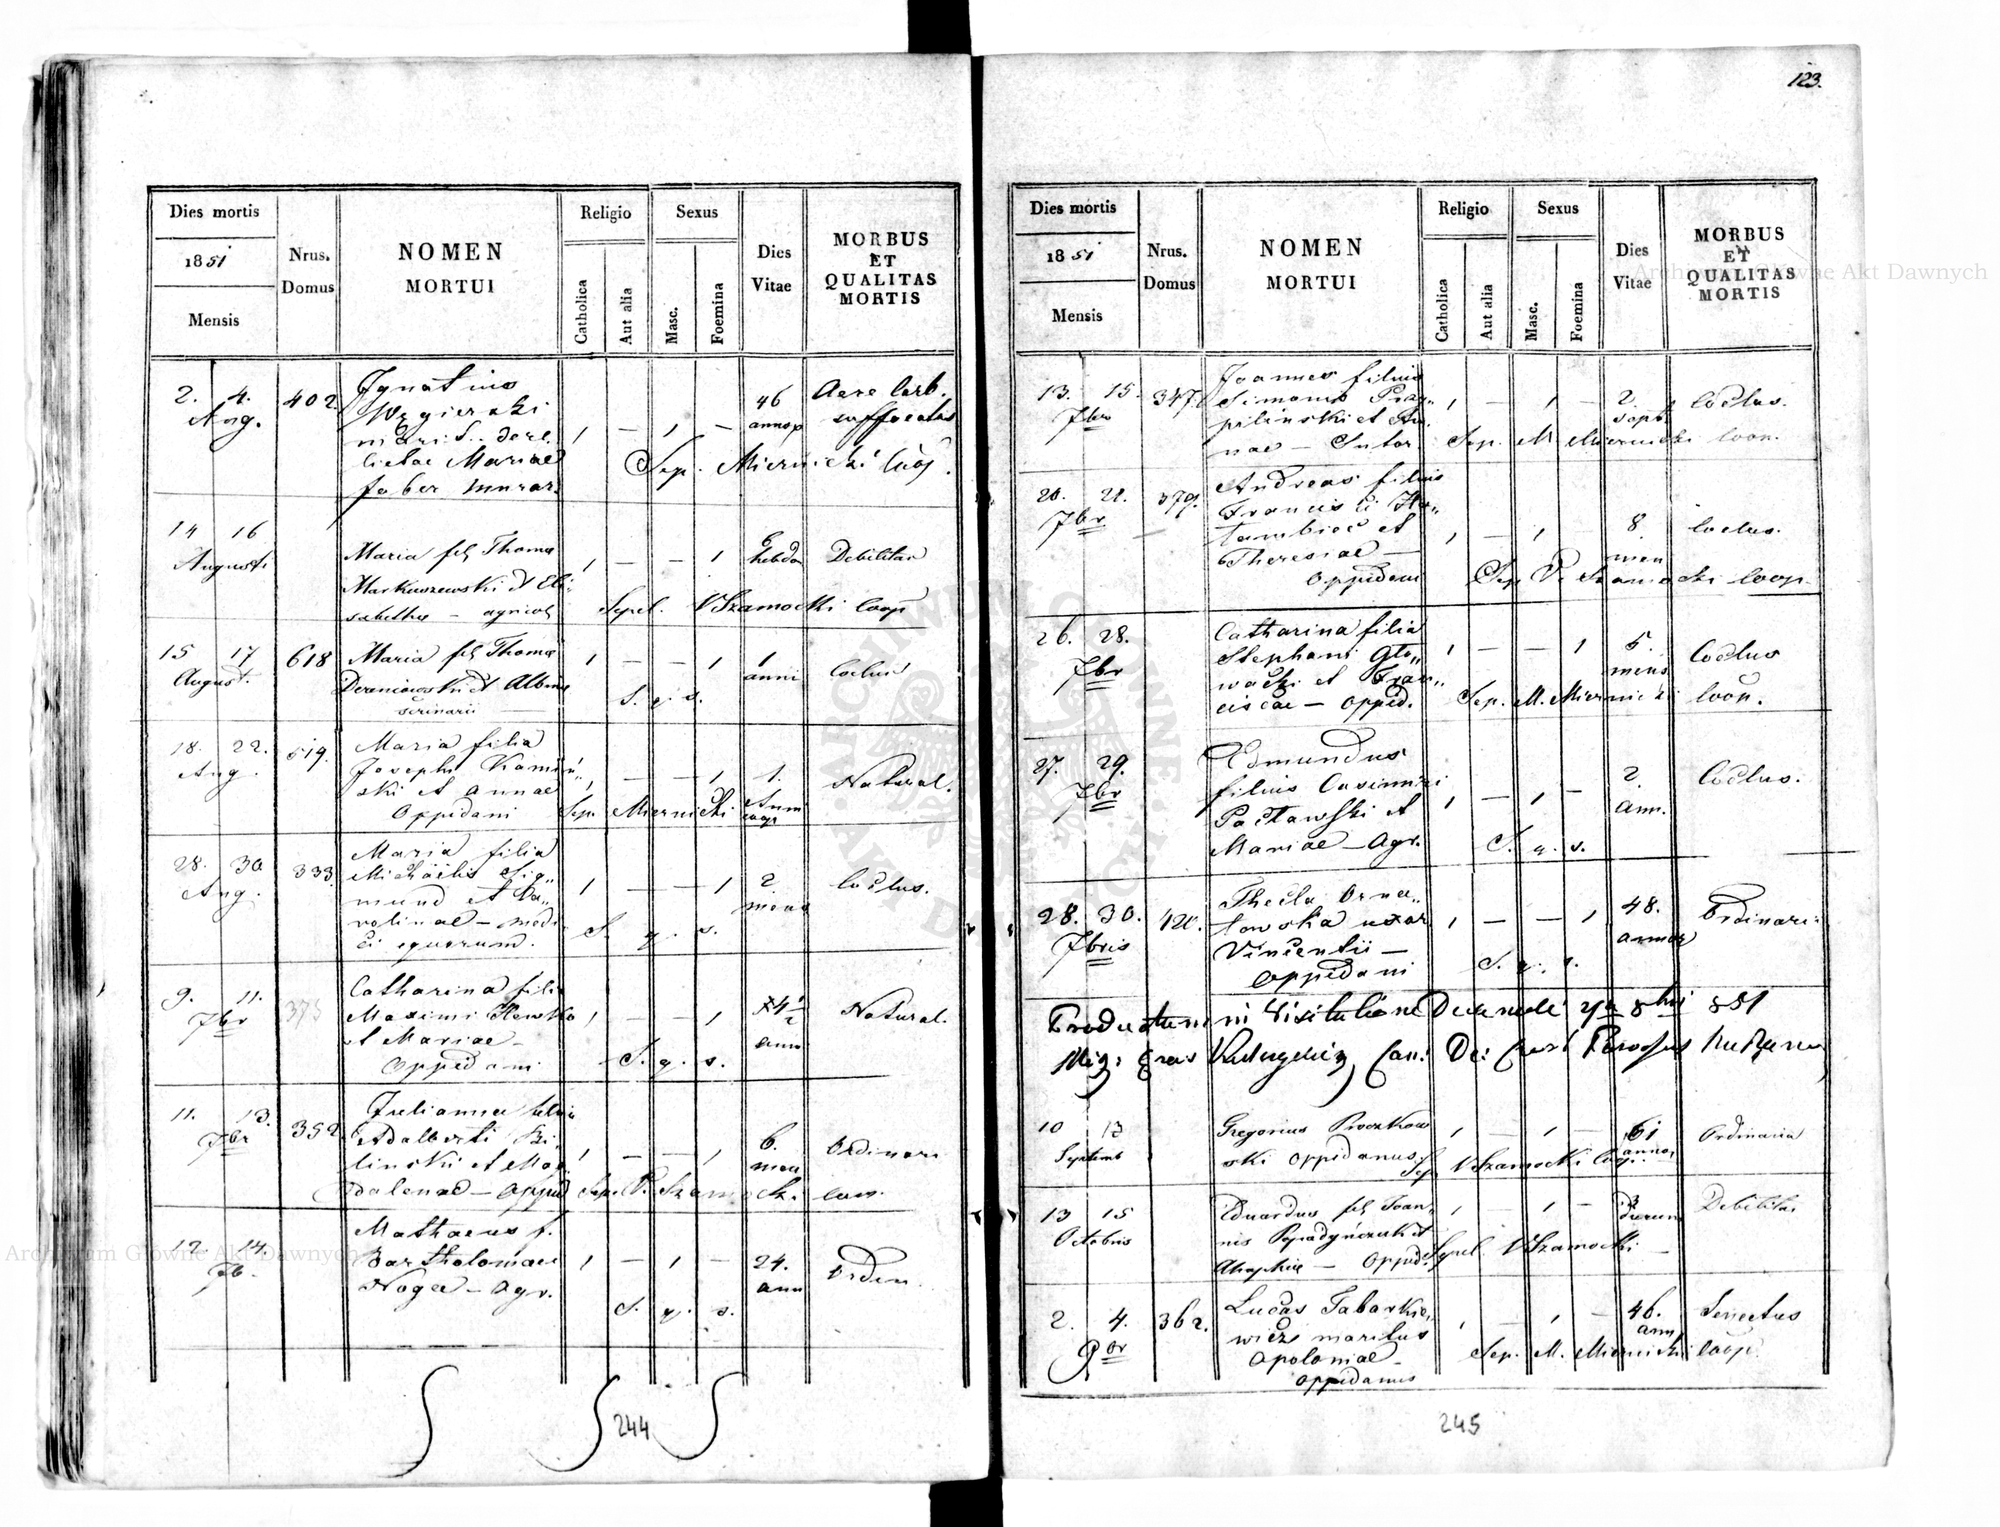 123.
Dies mortis
1851
Mensis
Nrus.
Domus
NOMEN
MORTUI
Religio
Catholica
Aut alia
Sexus
Masc.
Foemina
Dies
Vitae
MORBUS
ET
QUALITAS
MORTIS
2. 4.
Aug.
402
Ignatius
Węgierski
marit. dere
lictae Mariae
faber murar.
1 — 1 —
46
annos
Aere Carb.
suffocatus
Sep. Miernicki Coop.
14 16
Augusti
Maria fil Thoma
Markuszewski et Eli
sabethae — agricol
1 — — 1
6
hebdo
Debilitas
Sepel. VSzamocki Coop
15 17
August.
618
Maria fil Thoma
et Albinae
1 — — 1
1
anni
Coclus
S. q. s.
18. 22.
Aug.
519.
Maria filia
Josephi Kamiń„
ski et Annae
Oppidani
1 — — 1
1.
Ann
Natural.
Sep. Miernicki coop
28. 30
Aug.
333
Maria filia
Michaelis Sig„
mund et Ka„
rolinae — medi
ci equorum.
1 — — 1
2.
mens
Coclus.
S. q. s.
9. 11.
7br
375
Catharina filia
Maximi
et Mariae —
Oppidani
1 — — 1
½
ann
Natural.
S. q. s.
11. 13.
7br
352
Julianna filia
Adalberti Bi
linski et Mag
dalenae — Oppid
1 — — 1
6.
men
Ordinari
Sep. P. Szamocki coo.
12 14.
7b.
Mathaeus f.
Bartholomaei
Noga — Agr.
1 — 1 —
24.
ann
Orden.
S. q. s.
244
Dies mortis
1851
Mensis
Nrus.
Domus
NOMEN
MORTUI
Religio
Catholica
Aut alia
Sexus
Masc.
Foemina
Dies
Vitae
MORBUS
ET
QUALITAS
MORTIS
13. 15.
7br
347.
Joannes filius
Simonis Przy„
pilinski et An„
nae — Sutor
1 — 1 —
2.
Sept
Coclus.
Sep. M Miernicki Coop.
20. 21.
7br
379.
Andreas filius
Francisci
et
Theresiae —
Oppidani
1 — 1
8
men
Coclus.
Sep P. Szamocki Coop.
26. 28.
7br
Catharina filia
Stephani Gło„
wacki et Fran„
ciscae — Oppid.
1 — — 1
5.
mens
Coclus
Sep. M. Miernicki Coop.
27. 29.
7br
Edmundus
filius Casimiri
Pacławski et
Mariae — Agr.
1 — 1 —
2.
Ann.
Coclus.
S. q. s.
28. 30.
7bris
420.
Thecla Orna„
towska uxor
Vincentii —
Oppidani
1 — — 1
48.
annor
Ordinari
S. q. s.
Productum in Visitatione Decanali 8bri 851
10 12
Septemb
Gregorius Proczkow
ski Oppidanus.
1 — 1 —
61
annos
Ordinaria
Sep VSzamocki Coop.
13 15
Octobris
Eduardus fil Joan
nis et
— Oppid.
1 — 1 —
3
dierum
Debilitas
Sepel VSzamocki —
2. 4.
9br
362.
Lucas Tabarkie„
wicz maritus
Apoloniae —
Oppidanus
1 — 1 —
46.
ann
Senectus
Sep. M. Miernicki Coop.
245
Archiwum Główne Akt Dawnych
Archiwum Główne Akt Dawnych